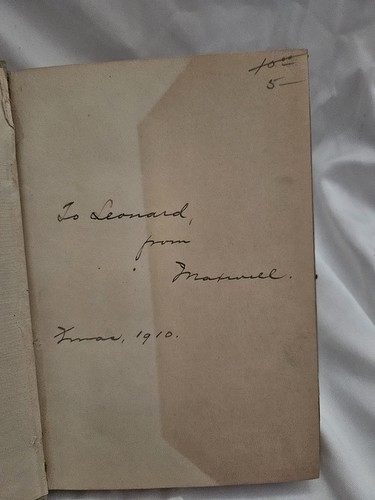 10.00
5—
To Leonard,
from
Maxwell.
Xmas, 1910.